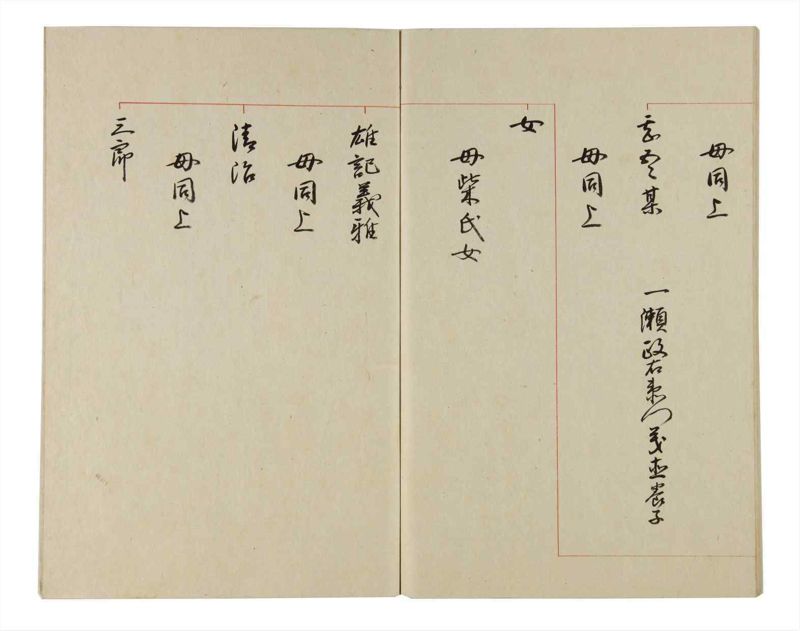 母同上
某
一瀬政右衛門義直養子
母同上
女
母柴氏女
雄記義雅
母同上
清治
母同上
三郎